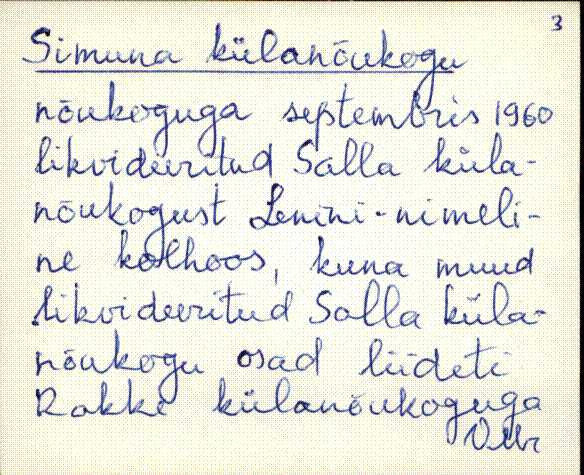 3
Simuna külanõukogu
nõukoguga septembris 1960
likvideeritud Salla küla-
nõukogust Lenini-nimeli-
ne kolhoos, kuna muud
likvideeritud Salla küla-
nõukogu osad liideti
Rakke külanõukoguga